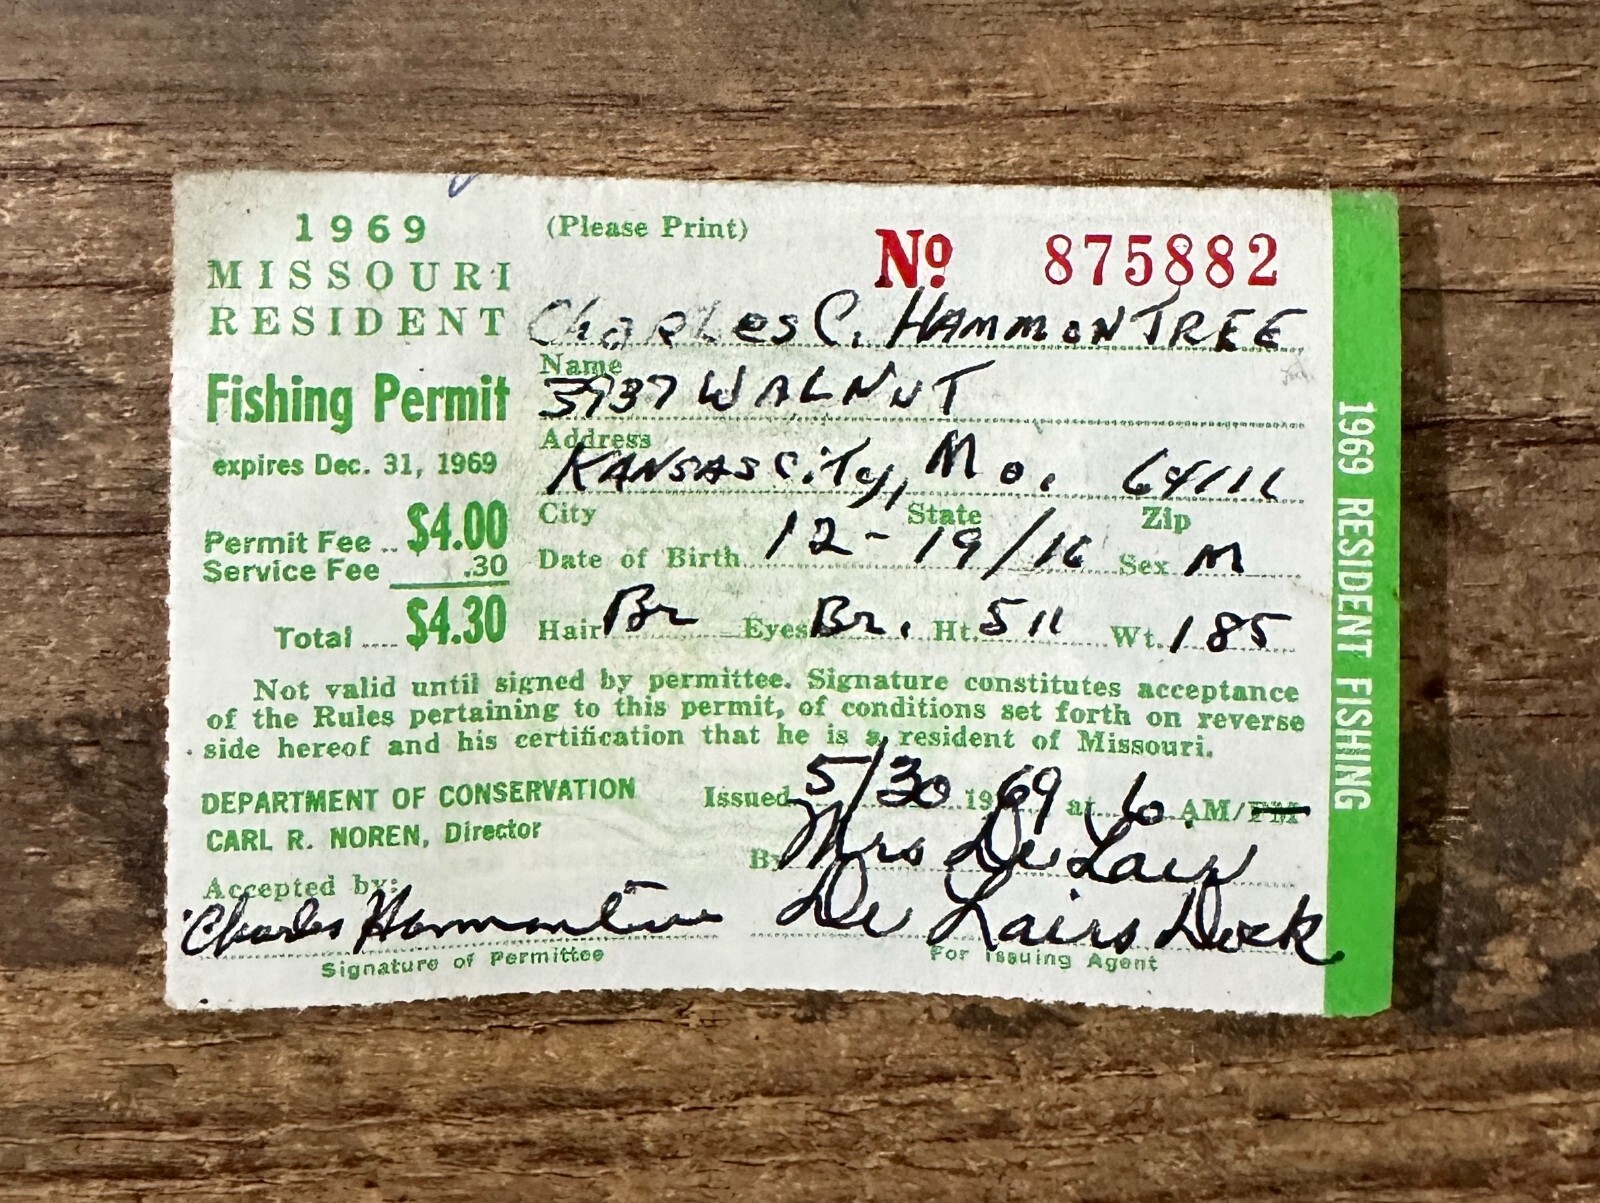 1969
MISSOURI
RESIDENT
Fishing Permit
expires Dec. 31, 1969
Permit Fee .. $4.00
Service Fee .30
Total .... $4.30
(Please Print)
No. 875882
Charles C. HAMMONTREE
Name
3737 WALNUT
Address
KANSAS City, Mo. 64111
City State Zip
Date of Birth 12-19/16 Sex M
Hair Br Eyes Br. Ht. 5 11 Wt. 185
Not valid until signed by permittee. Signature constitutes acceptance
of the Rules pertaining to this permit, of conditions set forth on reverse
side hereof and his certification that he is a resident of Missouri.
DEPARTMENT OF CONSERVATION
CARL R. NOREN, Director
Issued 5/30 1969 at 6 AM/PM
By Mrs De Lair
Accepted by:
Charles Hammontree
Signature of Permittee
De Lairs Dock
For Issuing Agent
1969 RESIDENT FISHING